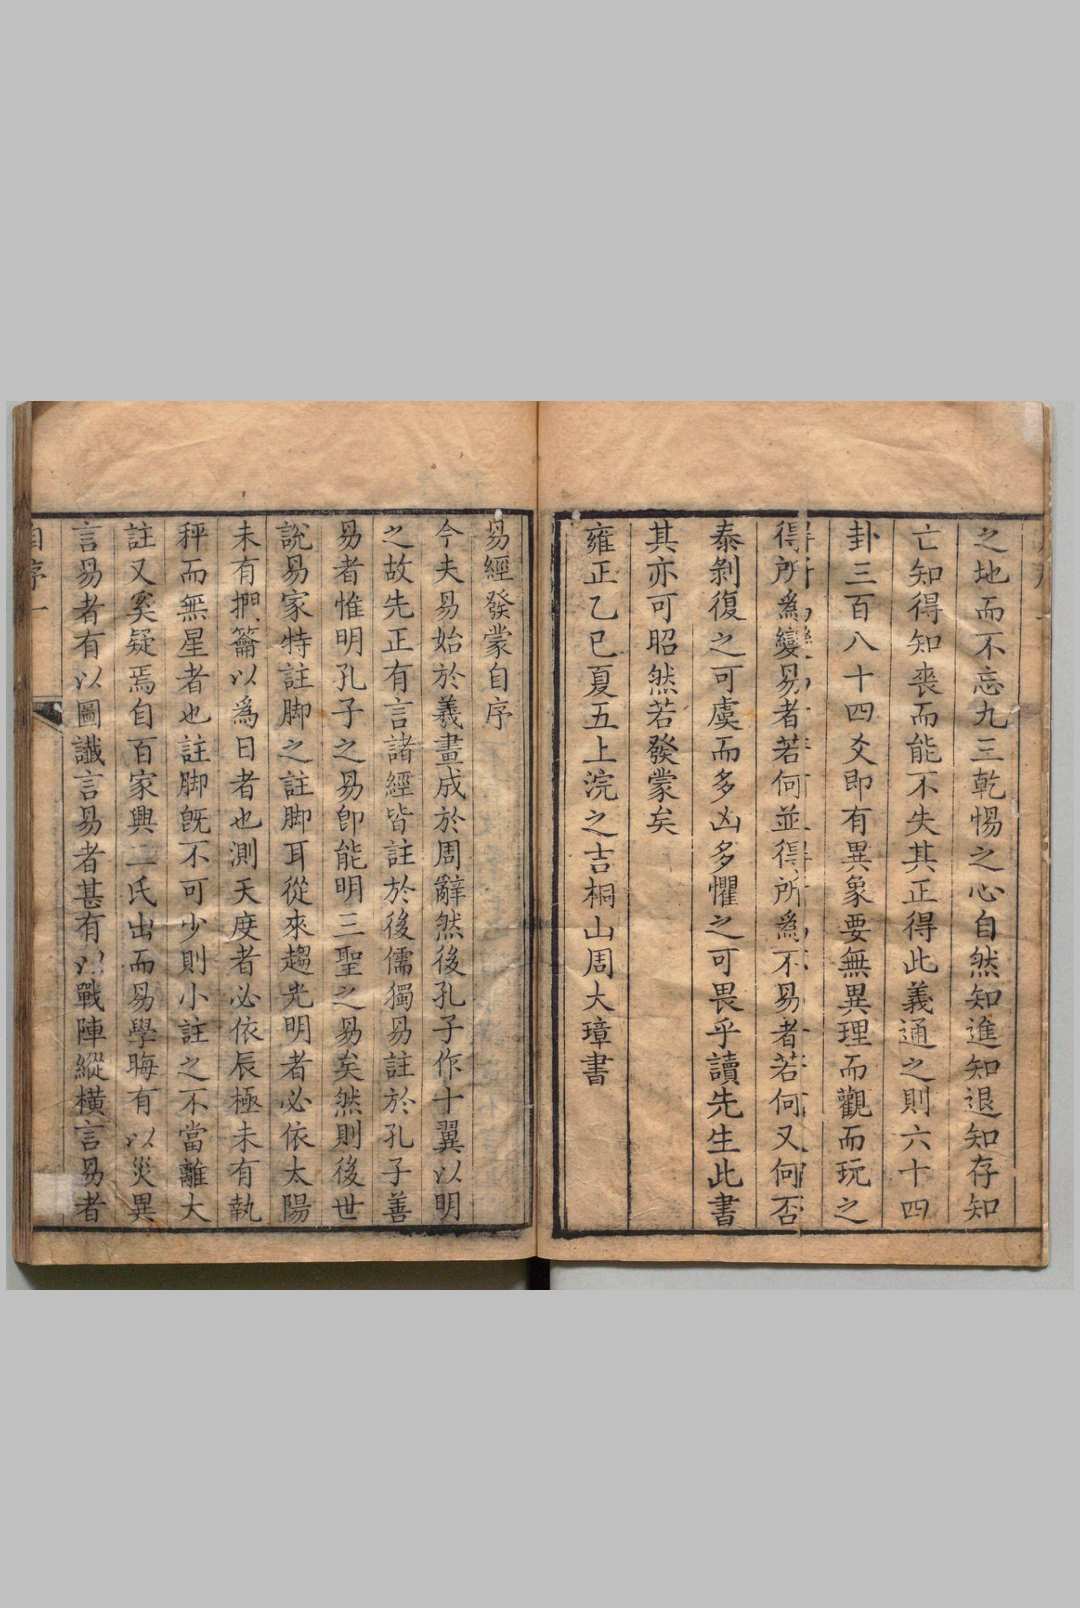 之地而不忘九三乾惕之心自然知進知退知存知
亡知得知喪而能不失其正得此義通之則六十四
卦三百八十四爻即有異象要無異理而觀而玩之
得所為變易者若何並得所為不易者若何又何否
泰剝復之可虞而多凶多懼之可畏乎讀先生此書
其亦可昭然若發蒙矣
雍正乙巳夏五上浣之吉桐山周大璋書
易經發蒙自序
今夫易始於羲畫成於周辭然後孔子作十翼以明
之故先正有言諸經皆註於後儒獨易註於孔子善
易者惟明孔子之易即能明三聖之易矣然則後世
說易家特註脚之註脚耳從來趨光明者必依太陽
未有捫籥以為日者也測天度者必依辰極未有執
秤而無星者也註脚既不可少則小註之不當離大
註又奚疑焉自百家興二氏出而易學晦有以災異
言易者有以圖讖言易者甚有以戰陣縱橫言易者
自序一